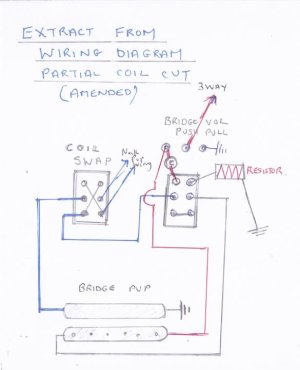 EXTRACT FROM
WIRING DIAGRAM
PARTIAL COIL CUT
(AMENDED)
3WAY
BRIDGE VOL
PUSH PULL
COIL
SWAP
RESISTOR
BRIDGE PUP